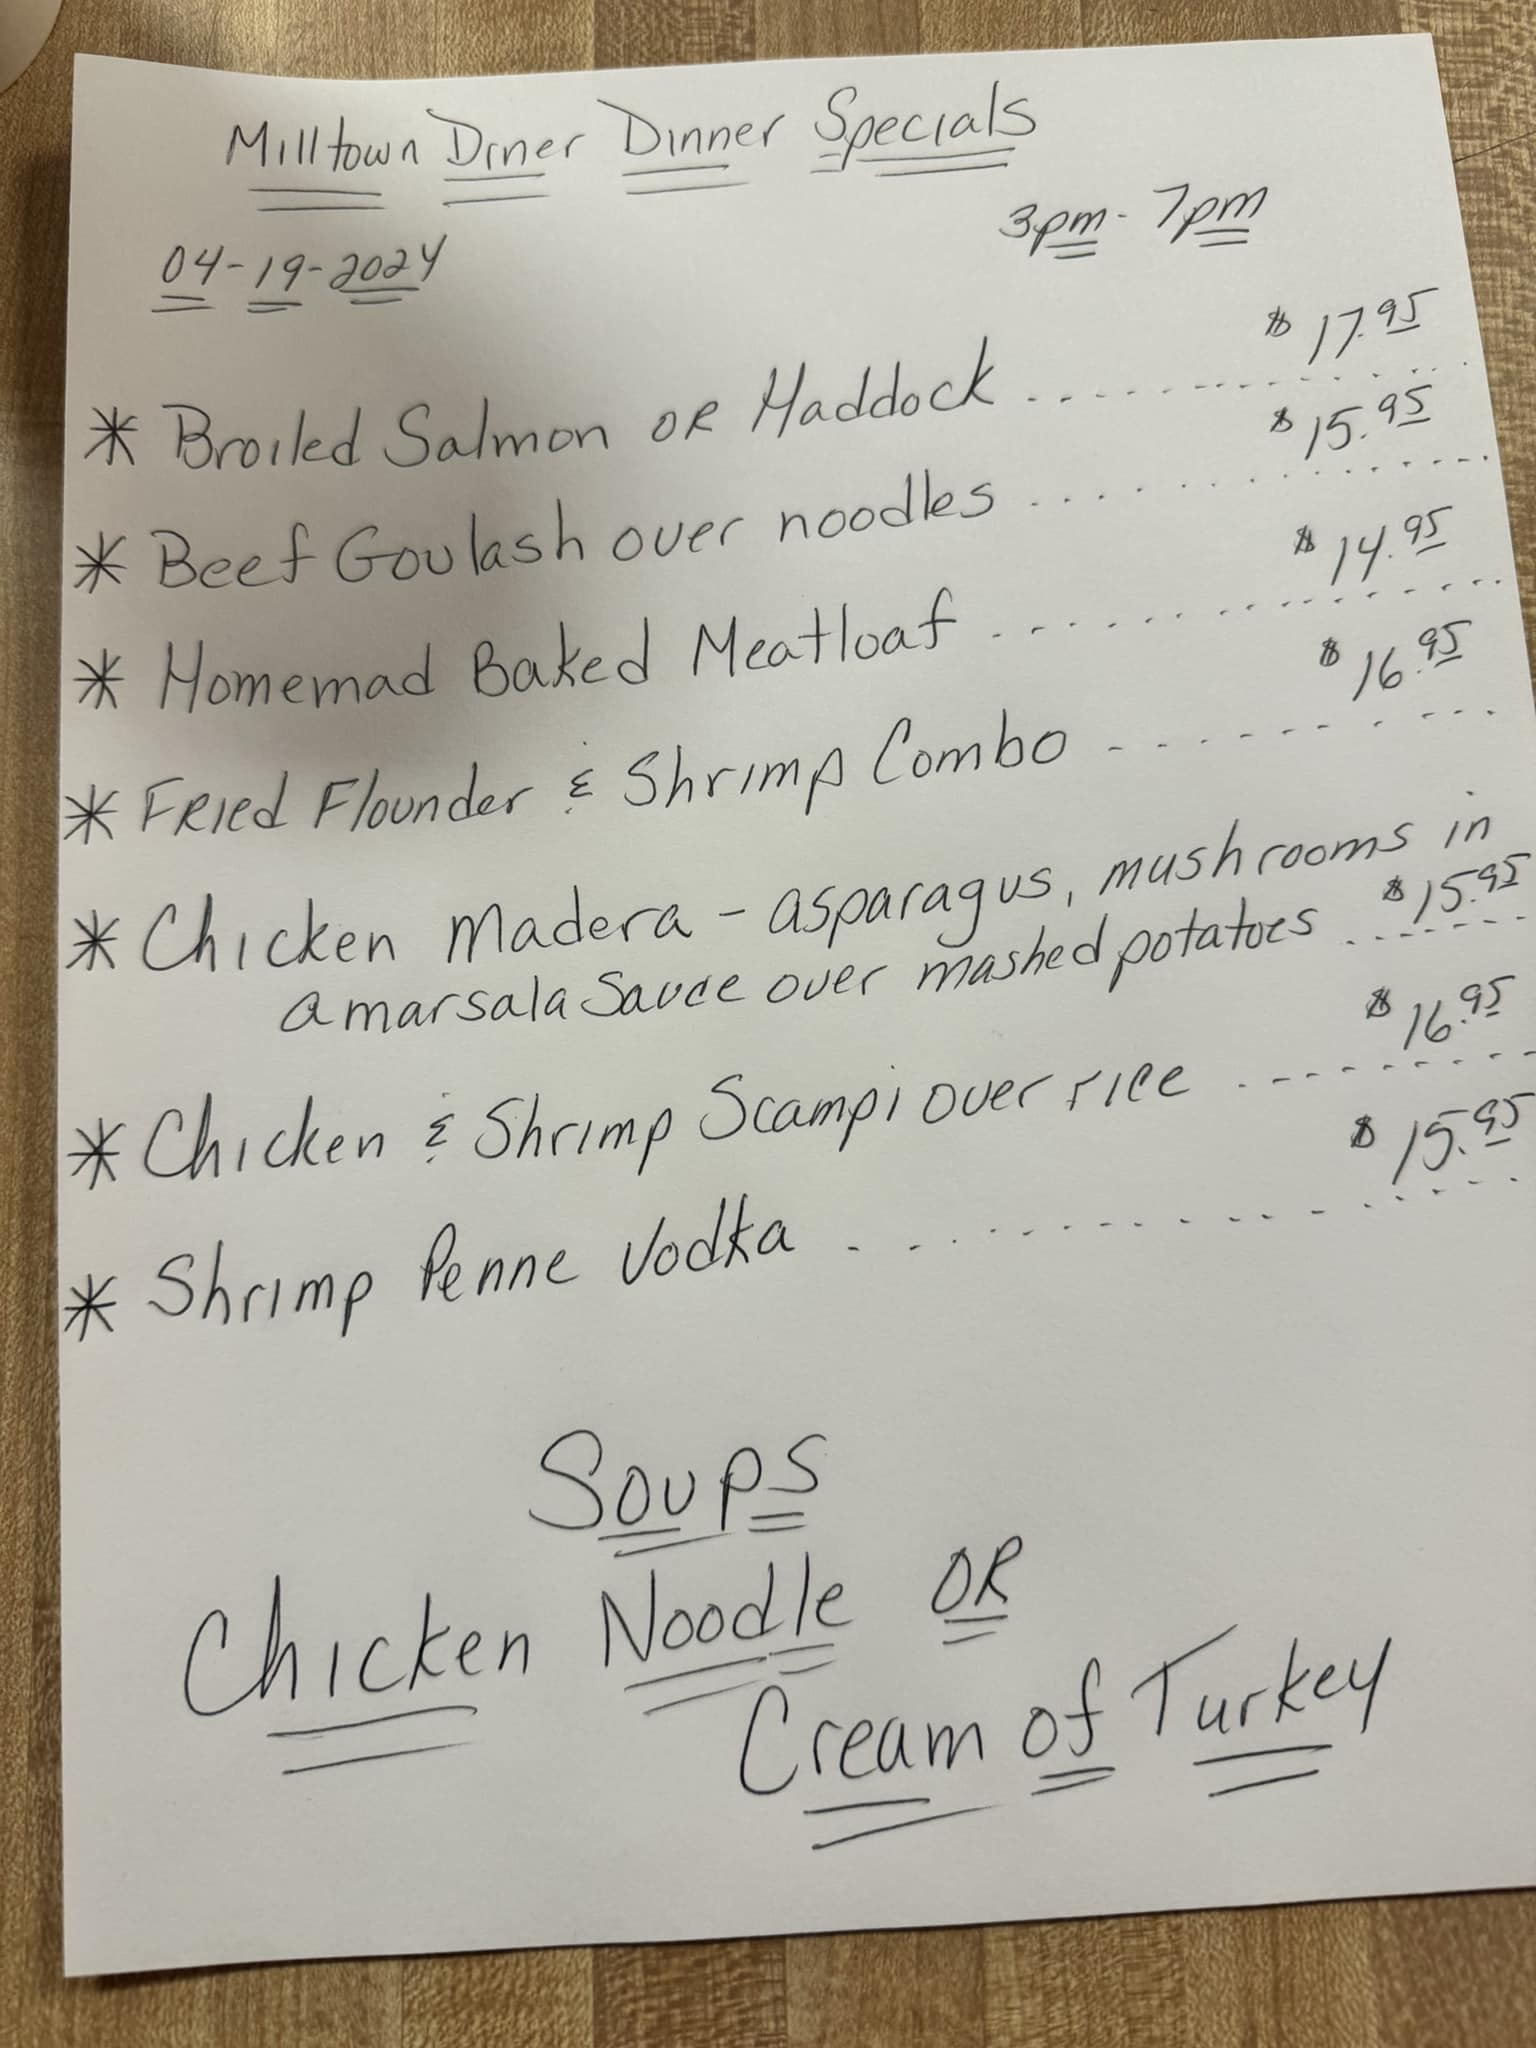 Milltown Diner Dinner Specials
3pm - 7pm
04-19-2024
* Broiled Salmon OR Haddock .......... $17.95
* Beef Goulash over noodles .......... $15.95
* Homemad Baked Meatloaf .......... $14.95
* Fried Flounder & Shrimp Combo .......... $16.95
* Chicken Madera - asparagus, mushrooms in
a marsala Sauce over mashed potatoes ...... $15.95
* Chicken & Shrimp Scampi over rice .......... $16.95
* Shrimp Penne Vodka .......... $15.95
Soups
Chicken Noodle OR
Cream of Turkey